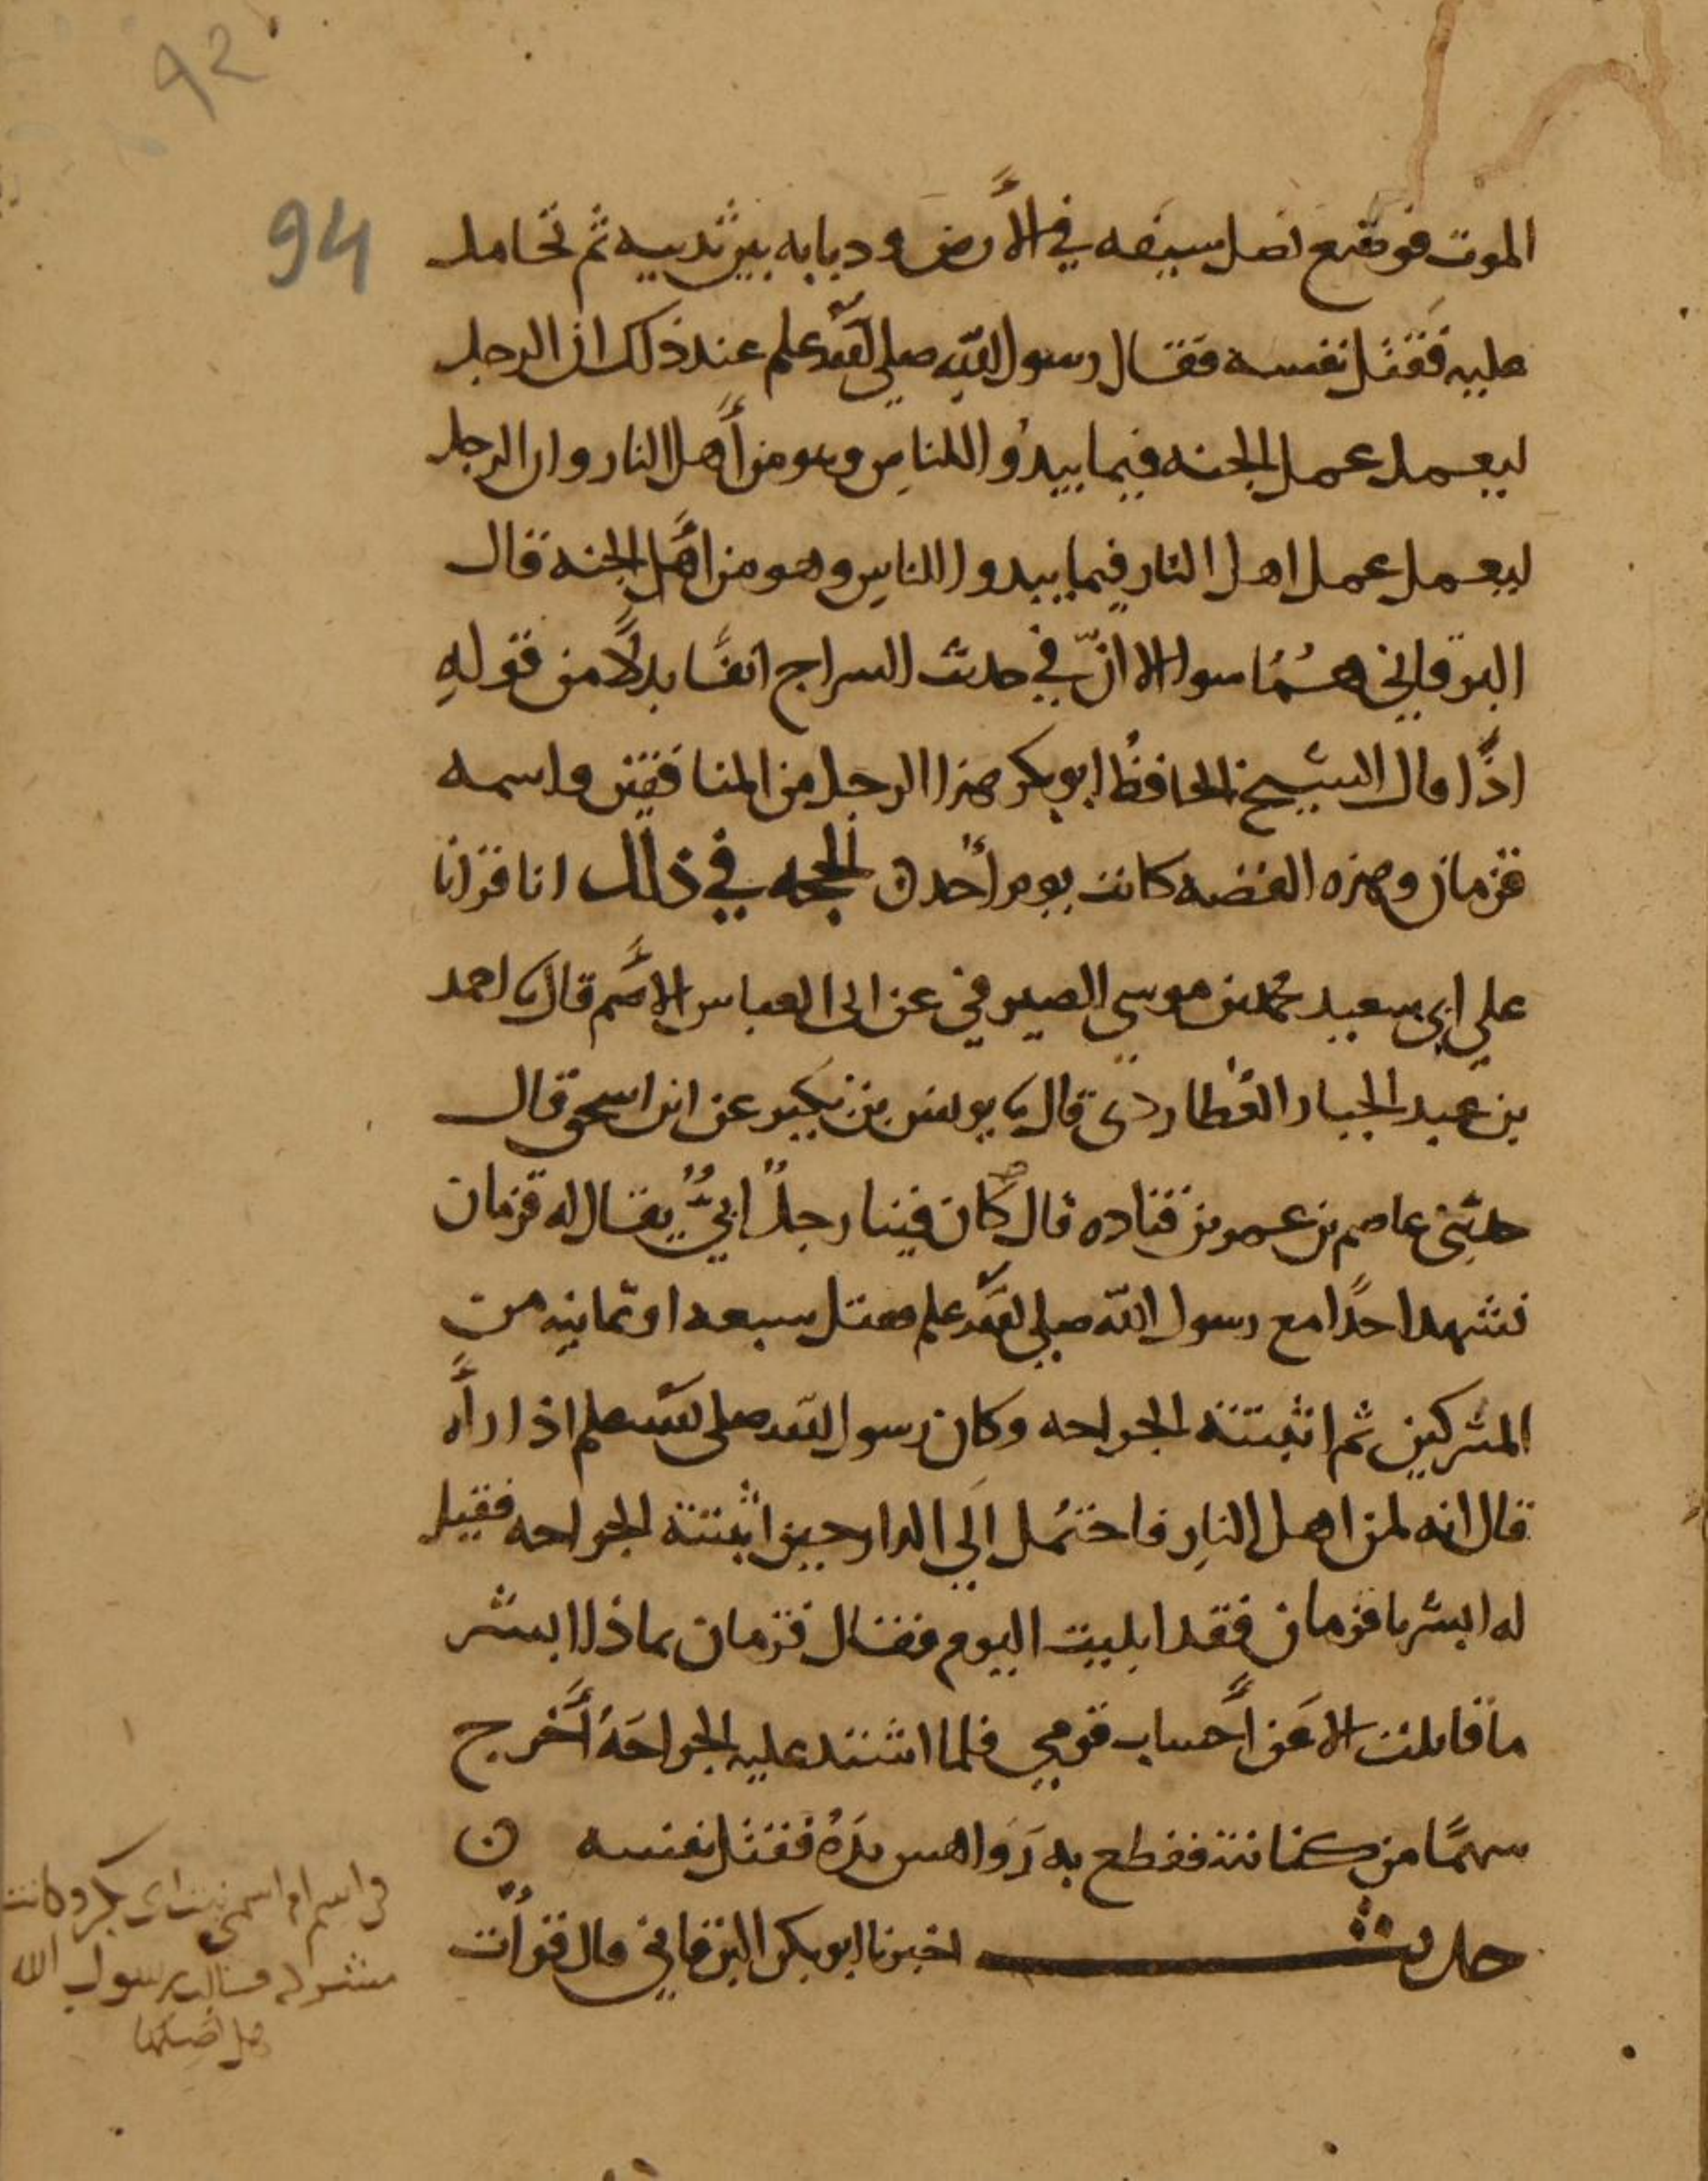 92
94
الموت فوضع نصل سيفه في الأرض وذبابه بين ثدييه ثم تحامل
عليه فقتل نفسه فقال رسول الله صلى الله علم عند ذلك ان الرجل
ليعمل عمل الجنه فيما يبدوا للناس وهو من أهل النار وان الرجل
ليعمل عمل اهل النار فيما يبدوا للناس وهو من أهل الجنه قال
البرقاني هما سوا الا انّ في حديث السراج انفًا بدلًا من قوله
اذًا قال الشيخ الحافظ ابو بكر هذا الرجل من المنافقين واسمه
قزمان وهذه القصه كانت يوم أحد ن الحجه في ذلك انا قرانا
علي ابي سعيد محمد بن موسى الصيرفي عن ابى العباس الأصم قال نا احمد
بن عبد الجبار العُطاردي قال نا يونس بن بكير عن ابن اسحق قال
حدثني عاصم بن عمر بن قتاده قال كان فينا رجلاً اتيٌّ يقال له قزمان
فشهد احدًا مع رسول الله صلى الله علم فقتل سبعه او ثمانيه من
المشركين ثم اثبتته الجراحه وكان رسول الله صلى الله علم اذا رأه
قال انه لمن اهل النار فاحتُمل الي الدار حين اثبتته الجراحه فقيل
له ابشر يا قزمان فقد ابليت اليوم فقال قزمان بماذا ابشر
ما قاتلت الا عن أحساب قومي فلما اشتد عليه الجراحةُ أخرج
سهمًا من كنانته فقطع به رَواهس يدَهُ فقتل نفسه ن
حديث اخبرنا ابو بكر البرقاني قال قرأت
في اسم ام اسمى بنت ابى بكر وكانت
مشركه فسالت رسول الله
هل اصلها